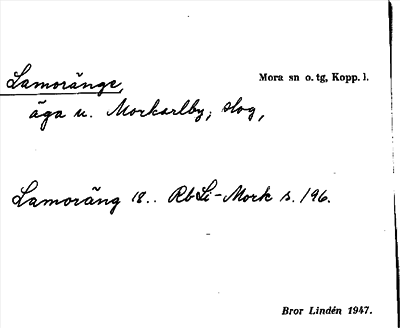 Lamoränge, Mora sn o. tg, Kopp. l.
äga u. Morkarlby; slog,
Lamoräng 18.. RbLi-Mork s. 196.
Bror Lindén 1947.